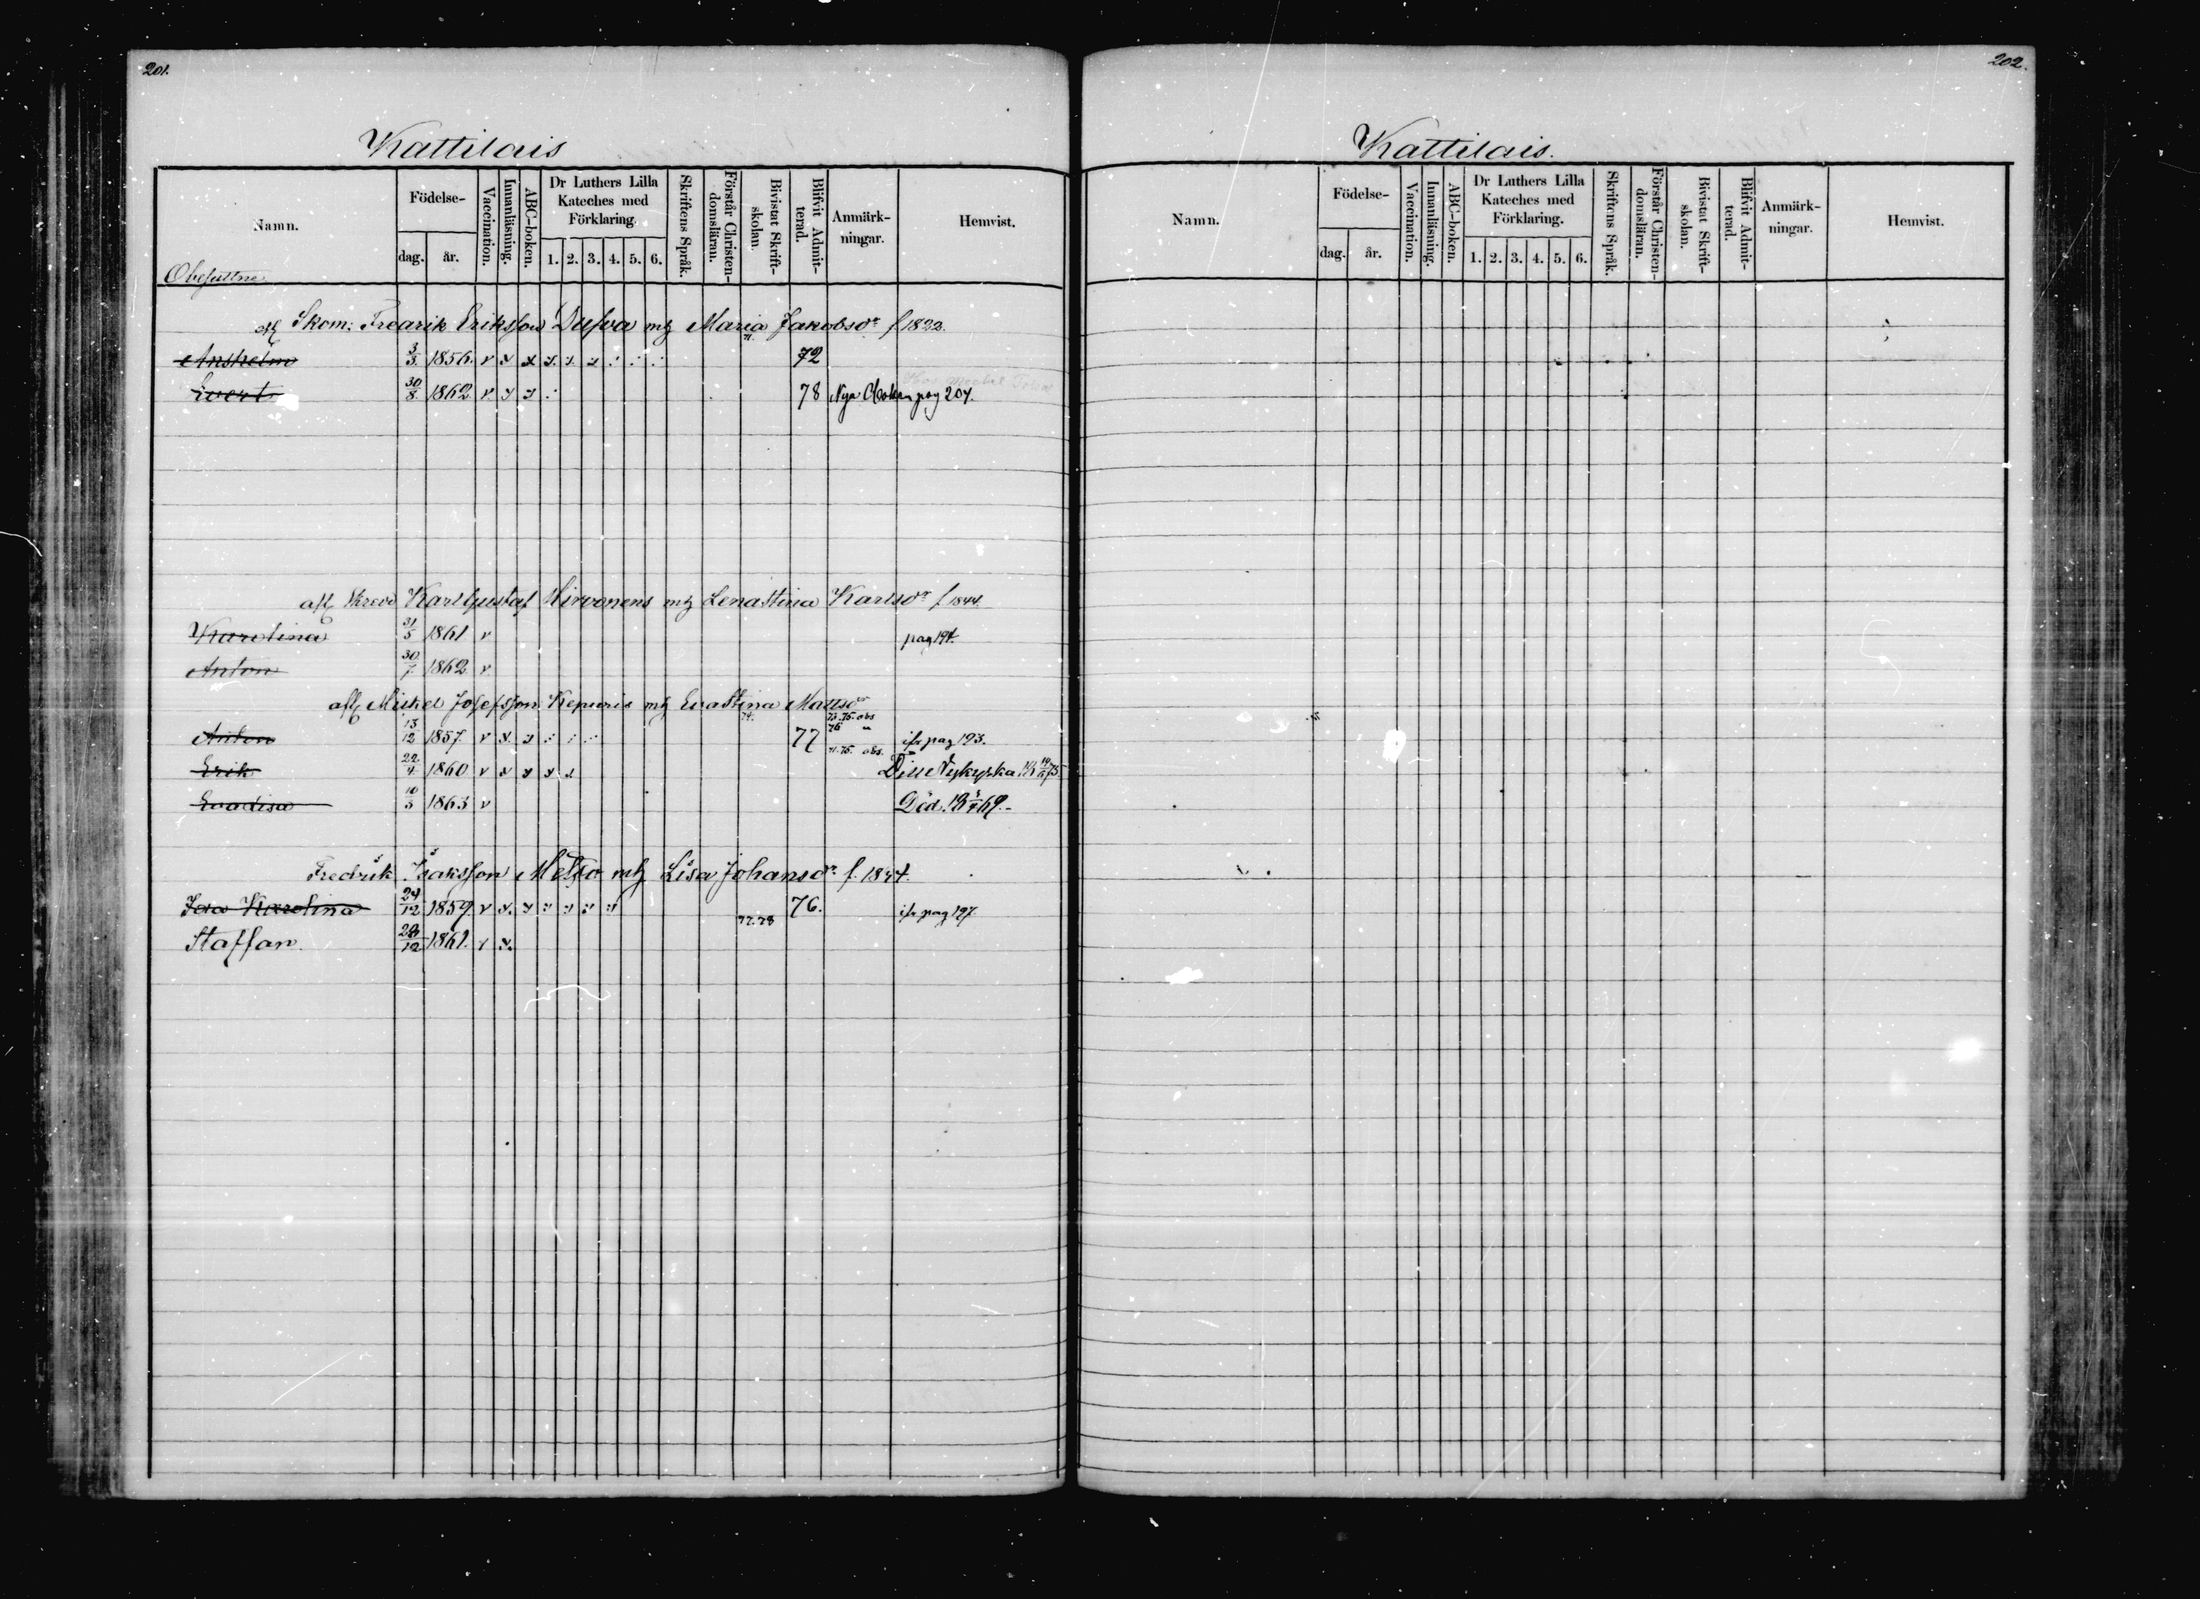 201.
Kattilais
Namn. Födelse- dag. år. Vaccination. Innanläsning. ABC-boken. Dr Luthers Lilla Kateches med Förklaring. 1. 2. 3. 4. 5. 6. Skriftens Språk. Förstår Christen-domsläran. Bivistat Skrift-skolan. Blifvit Admit-terad. Anmärk-ningar. Hemvist.
Obesuttne
afl Skom: Fredrik Eriksson Dufva m/h Maria Jakobsdr f 1822.
71.
Anshelm 3/3. 1856. v x x x. x. x : : : 72
Evert 30/8 1862. v x x : 78 Nya Boken pag 204.
afl Karl Gustaf Hirvonens m/h Lena Stina Karlsdr f 1844
Karolina 31/5 1861 v pag 194.
Anton 30/7 1862 v
afl Mickel Josefsson Kepuris m/h Eva Stina Mattsdr
74. 73.75. obs
Anton 13/12 1857. v x. x : : : 77 76 " ifr pag 193.
71.75. obs.
Erik 22/4 1860 v x x x x Till Nykyrka
Evalisa 10/3 1863 v Död
Fredrik Isaksson Metso m/h Lisa Johansdr f. 1844.
Ida Karolina 24/12 1859. v x. x x x x x 76. ifr pag 197
77.78
Staffan. 1861. v x.
202.
Kattilais.
Namn. Födelse- dag. år. Vaccination. Innanläsning. ABC-boken. Dr Luthers Lilla Kateches med Förklaring. 1. 2. 3. 4. 5. 6. Skriftens Språk. Förstår Christen-domsläran. Bivistat Skrift-skolan. Blifvit Admit-terad. Anmärk-ningar. Hemvist.